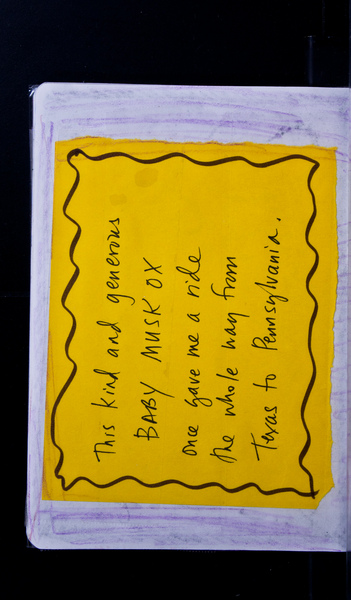 This kind and generous
BABY MUSK OX
once gave me a ride
the whole way from
Texas to Pennsylvania.